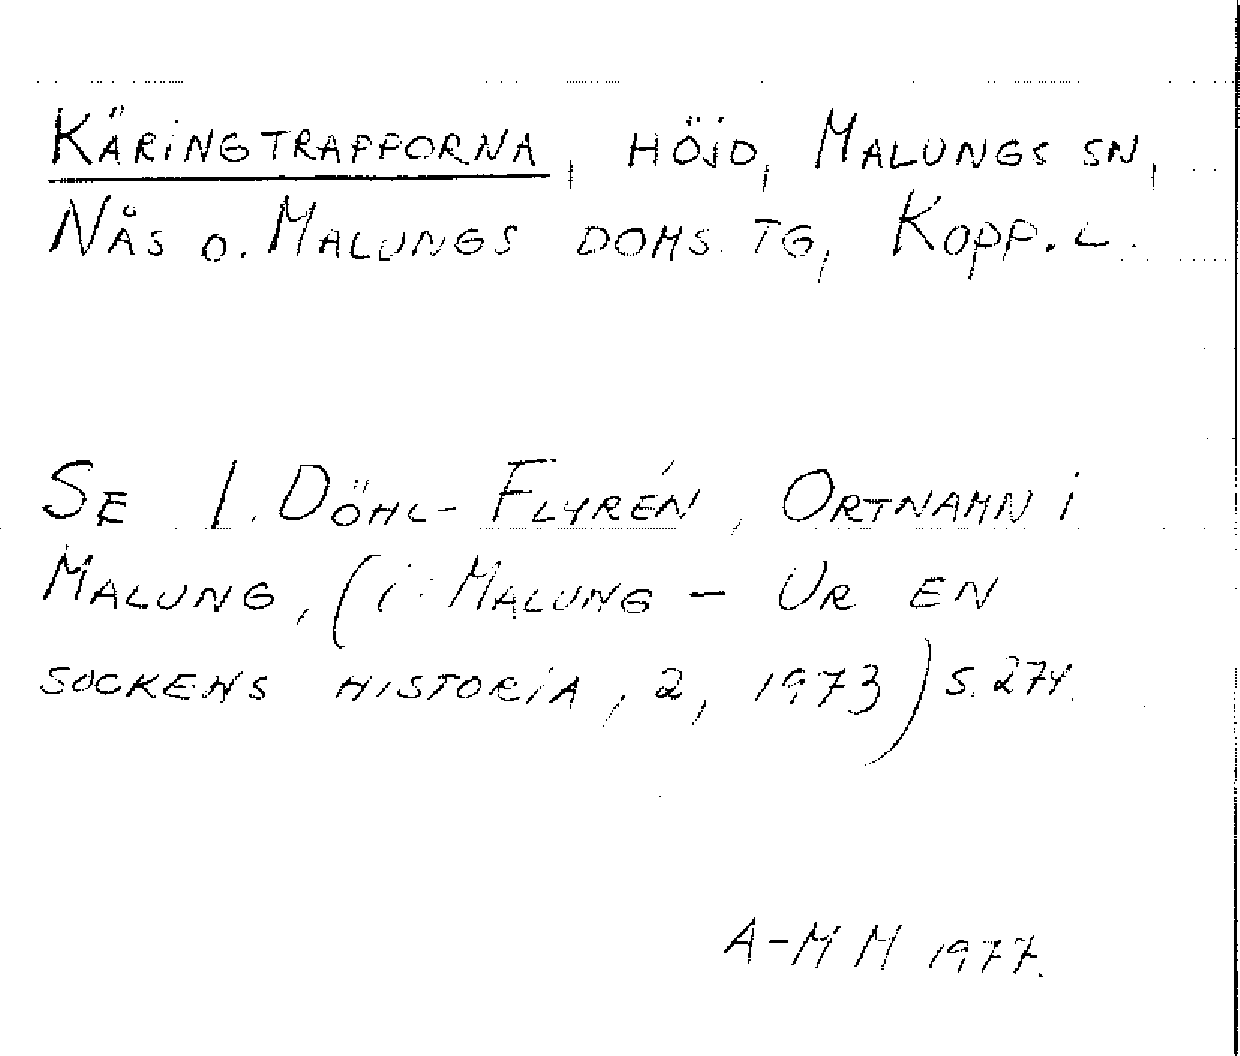 KÄRINGTRAPPORNA, HÖJD, MALUNGS SN,
NÅS O. MALUNGS DOMS. TG, KOPP. L.
SE I. DÖHL-FLYRÉN, ORTNAMN I
MALUNG, (I: MALUNG – UR EN
SOCKENS HISTORIA, 2, 1973) S. 274.
A-M M 1977.